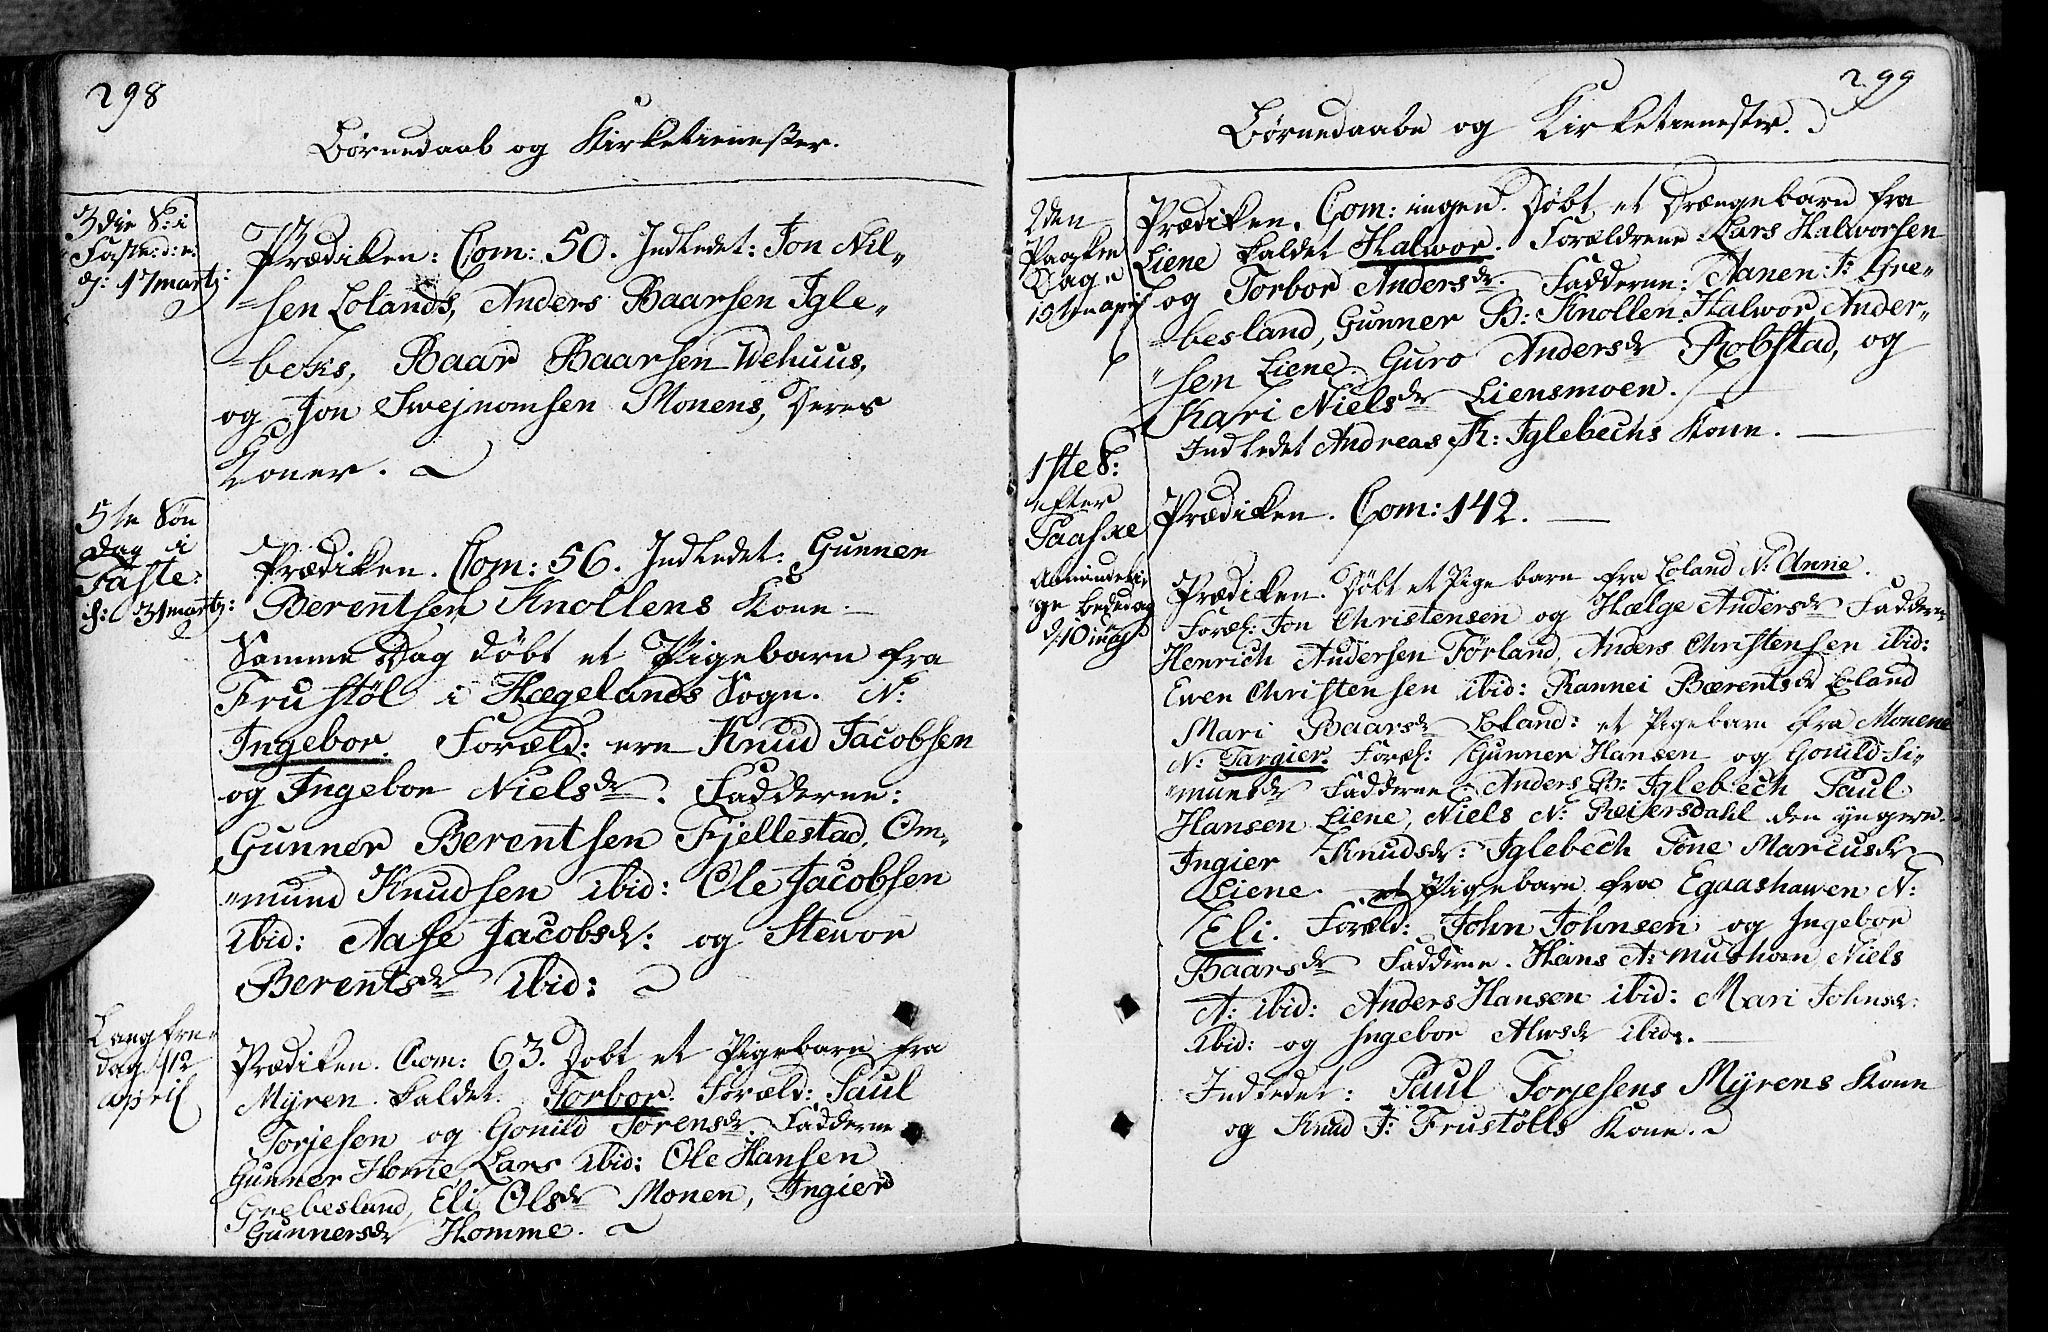 298
Børnedaab og Kirketienester.
3die S: i
Faste: d: e:
d: 17 martz:
Prædiken: Com: 50. Indledet: Jon Nil„
„sen Lolands, Anders Baarsen Igle„
„beks, Baar Baarsen Wehuus,
og Jon Swejnomsen Monens, Deres
Koner.
5te Søn
dag i
Faste:
d: 31 martz:
Prædiken. Com: 56. Indledet: Gunner
Berentsen Knollens Kone.
Samme Dag døbt et Pigebarn fra
Frustøl i Hægelands Sogn. N:
Ingebor. Foræld: ere Knud Jacobsen
og Ingebor Nielsdr. Fadderne:
Gunner Berentsen Fjellestad, Om„
„mund Knudsen ibid: Ole Jacobsen
ibid: Aase Jacobsdr: og Stewor
Berentsdr ibid:
Langfre
dag d 12
april
Prædiken. Com: 63. Døbt et Pigebarn fra
Myren kaldet Torbor. Foræld: Paul
Torjesen og Gonild Torensdr. Fadderne
Gunner Home, Lars ibid: Ole Hansen
Grebesland, Eli Olsdr Monen, Ingier
Gunnersdr Homme.
299
Børnedaabe og Kirketienester.
2den
Paaske
Dag
15ten april
Prædiken. Com: ingen. Døbt et Drængebarn fra
Liene kaldet Halwor. Forældrene: Lars Halworsen
og Torbor Andersdr. Fadderne: Aanen J: Gre„
„besland, Gunner B: Knollen, Halwor Ander„
„sen Liene, Guro Andersdr Robstad, og
Kari Nielsdr Liensmoen.
Indledet Andreas K: Iglebechs Kone.
1ste S:
efter
Paaske
Prædiken. Com: 142.
Almindeli„
ge Bededag
d: 10 maj
Prædiken. Døbt et Pigebarn fra Loland N: Anne.
Foræl: Jon Christensen og Hælge Andersdr Faddere
Henrich Andersen Førland, Anders Christensen ibid:
Ewen Christensen ibid: Rannei Bærentsdr Loland
Mari Baarsdr Loland: et Pigebarn fra Monene
N: Targier. Foræl: Gunner Hansen og Gonild Si„
„munsdr Fadderne: Anders B: Iglebech Paul
Hansen Liene, Niels N: Reiersdahl den yngere.
Ingier Knudsdr: Iglebech Tone Marcusdr
Liene. et Pigebarn fra Egaashawen N:
Eli. Foræld: John Johnsen og Ingebor
Baarsdr Fadderne. Hans A: Mushom, Niels
A: ibid: Anders Hansen ibid: Mari Johnsdr:
ibid: og Ingebor Alwsdr ibid:
Indledet: Paul Torjesens Myrens Kone
og Knud J: Frustølls Kone.